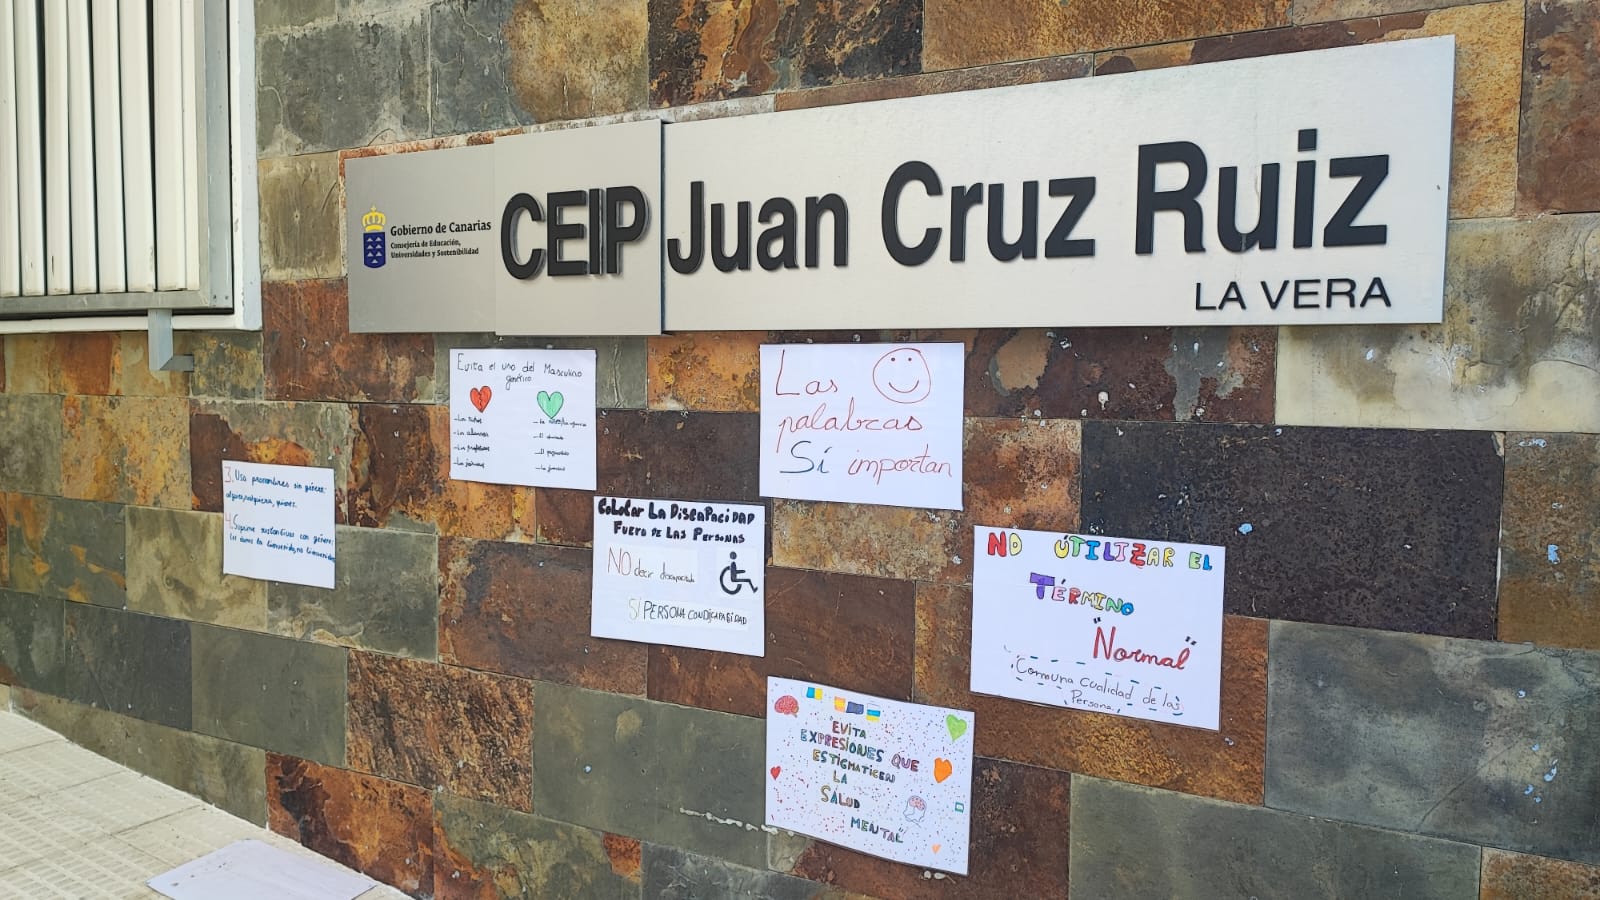 Gobierno de Canarias
Consejería de Educación,
Universidades y Sostenibilidad
CEIP Juan Cruz Ruiz
LA VERA
Evita el uso del Masculino
genérico
- Los niños
- Los alumnos
- Los profesores
- Los jóvenes
- El alumnado
- El profesorado
- La juventud
Las
palabras
Sí importan
3. Usa pronombres sin género:
alguien, cualquiera, quienes.
4. Suprime sustantivos con género:
COLOCAR LA DISCAPACIDAD
FUERA DE LAS PERSONAS
NO decir discapacitado
SÍ PERSONA CON DISCAPACIDAD
NO ÚTILIZAR EL
TÉRMINO
"Normal"
Como una Cualidad de las
Persona.
"EVITA
EXPRESIONES QUE
ESTIGMATICEN
LA
SALUD
MENTAL"